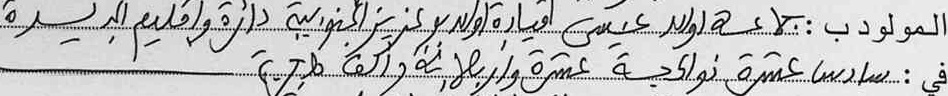 المولود ب: جماعة اولاد عيسى قيادة اولاد بوعزيز الجنوبية دائرة واقليم الجديدة
في: سادس عشرة ذو الحجة عشرة واربعمائة والف هجرية